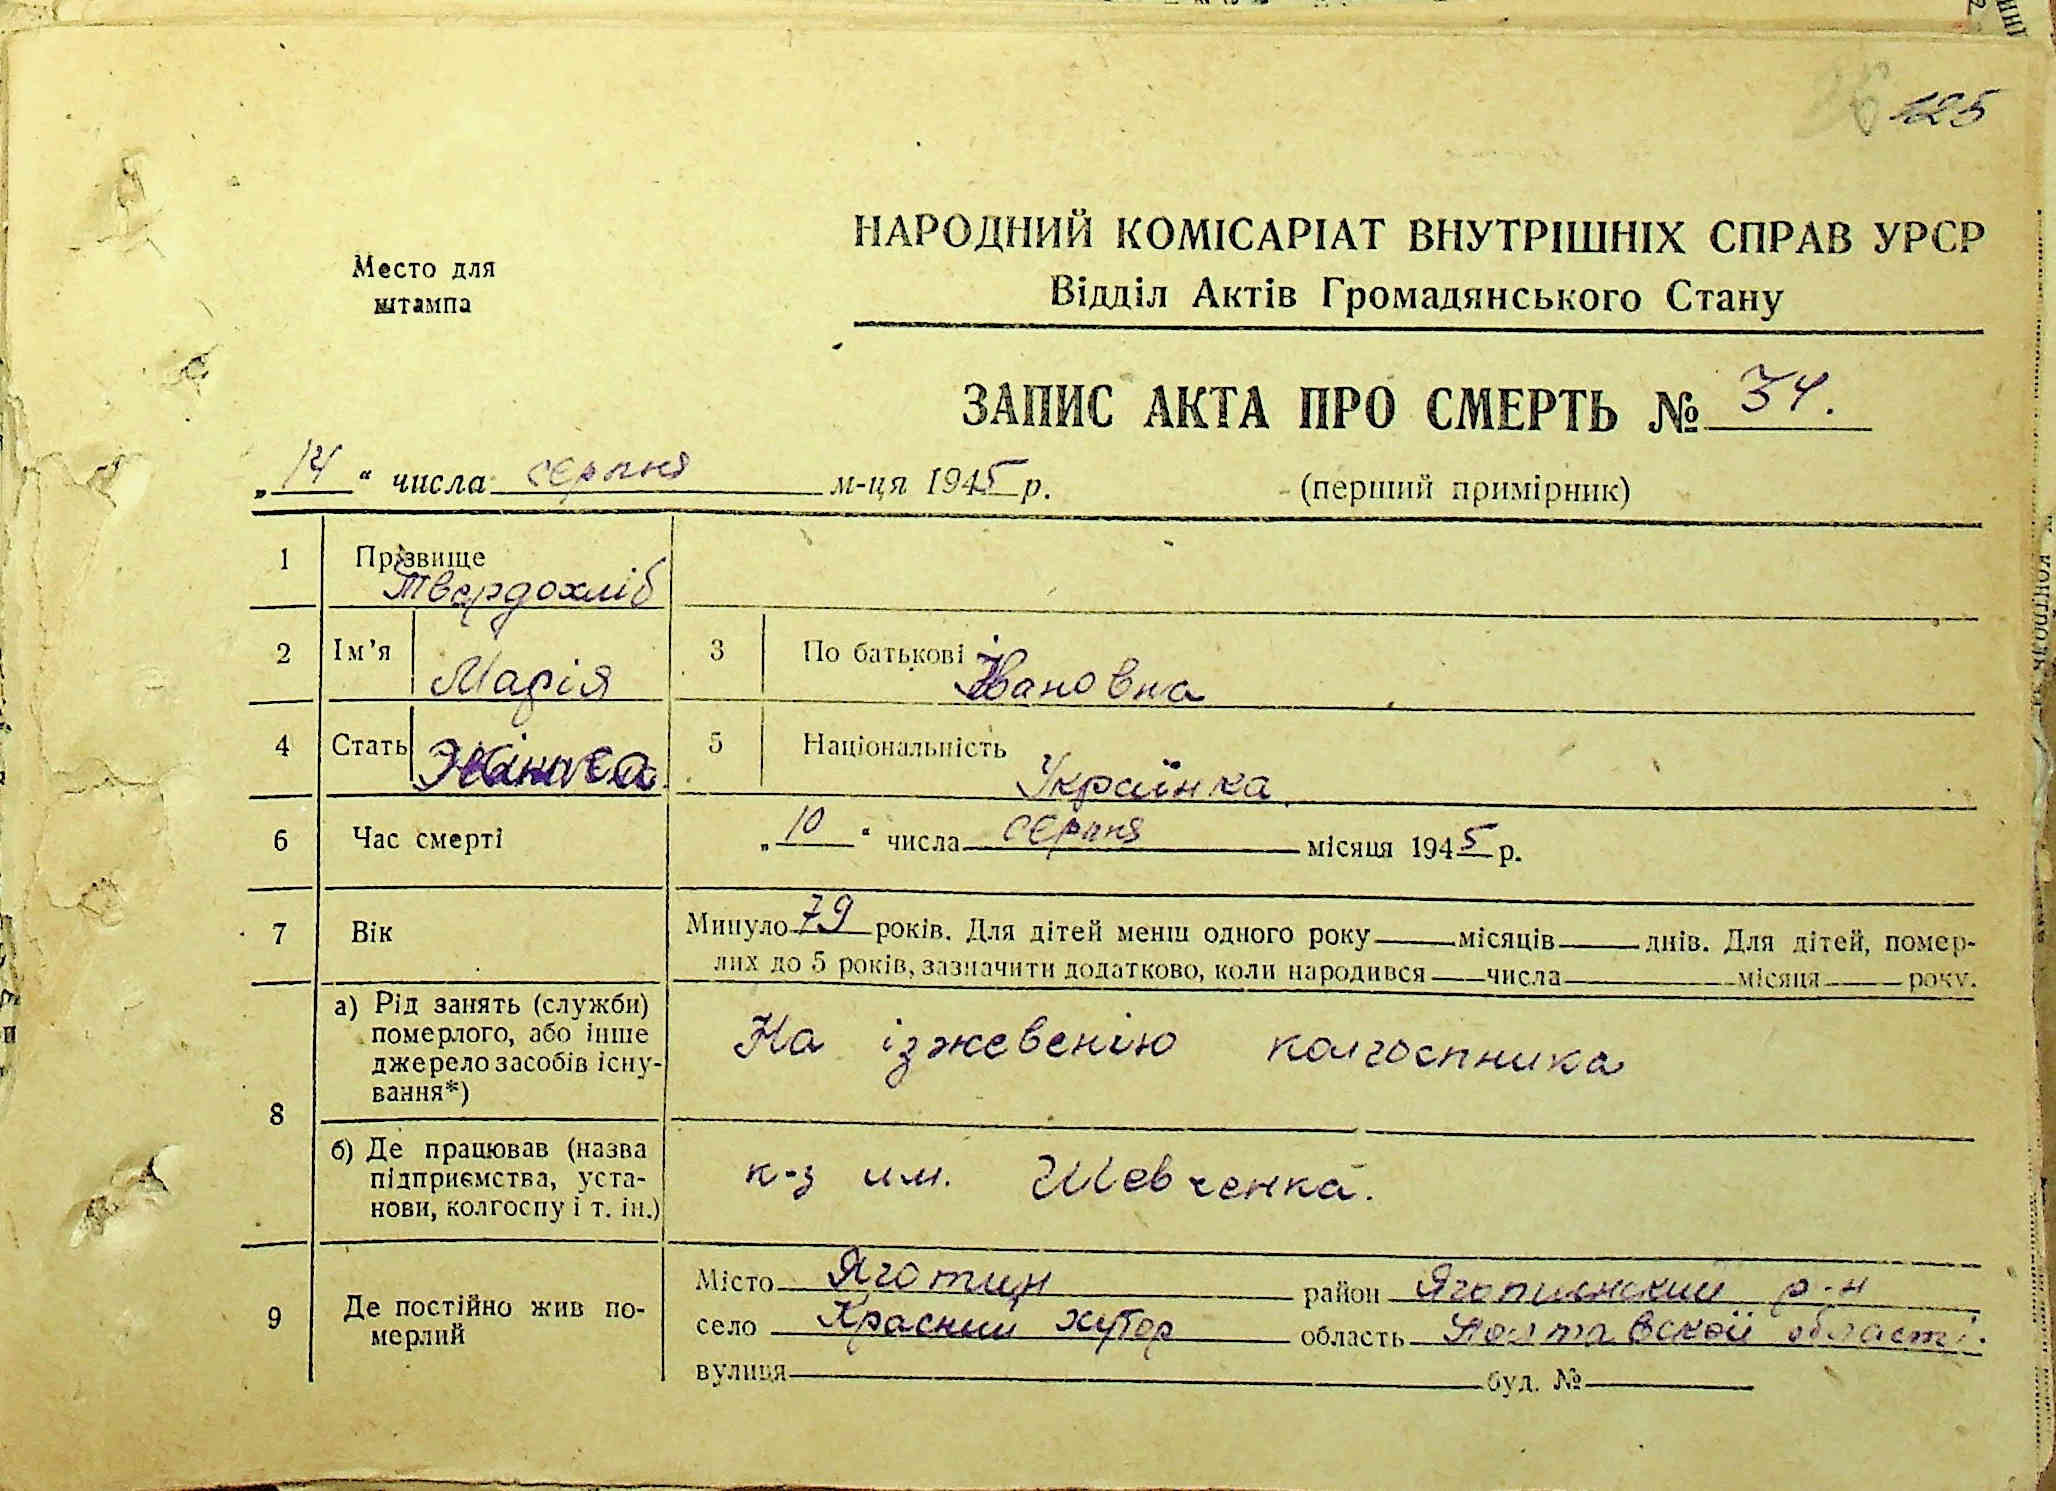 125
Место для
штампа
НАРОДНИЙ КОМІСАРІАТ ВНУТРІШНІХ СПРАВ УРСР
Відділ Актів Громадянського Стану
ЗАПИС АКТА ПРО СМЕРТЬ № 34.
„14“ числа серпня м-ця 1945 р. (перший примірник)
1 Прізвище
Твердохліб
2 Ім’я Марія 3 По батькові Івановна
4 Стать Жіноча 5 Національність Українка
6 Час смерті „10“ числа серпня місяця 1945 р.
7 Вік Минуло 79 років. Для дітей менш одного року місяців днів. Для дітей, помер-
лих до 5 років, зазначити додатково, коли народився числа місяця року.
8 а) Рід занять (служби)
померлого, або інше
джерело засобів існу-
вання*)
На ізжевенію колгоспника
б) Де працював (назва
підприємства, уста-
нови, колгоспу і т. ін.)
к-з им. Шевченка.
9 Де постійно жив по-
мерлий
Місто Яготин район Яготинский р-н
село Красний хутор область Полтавской області.
вулиця буд. №